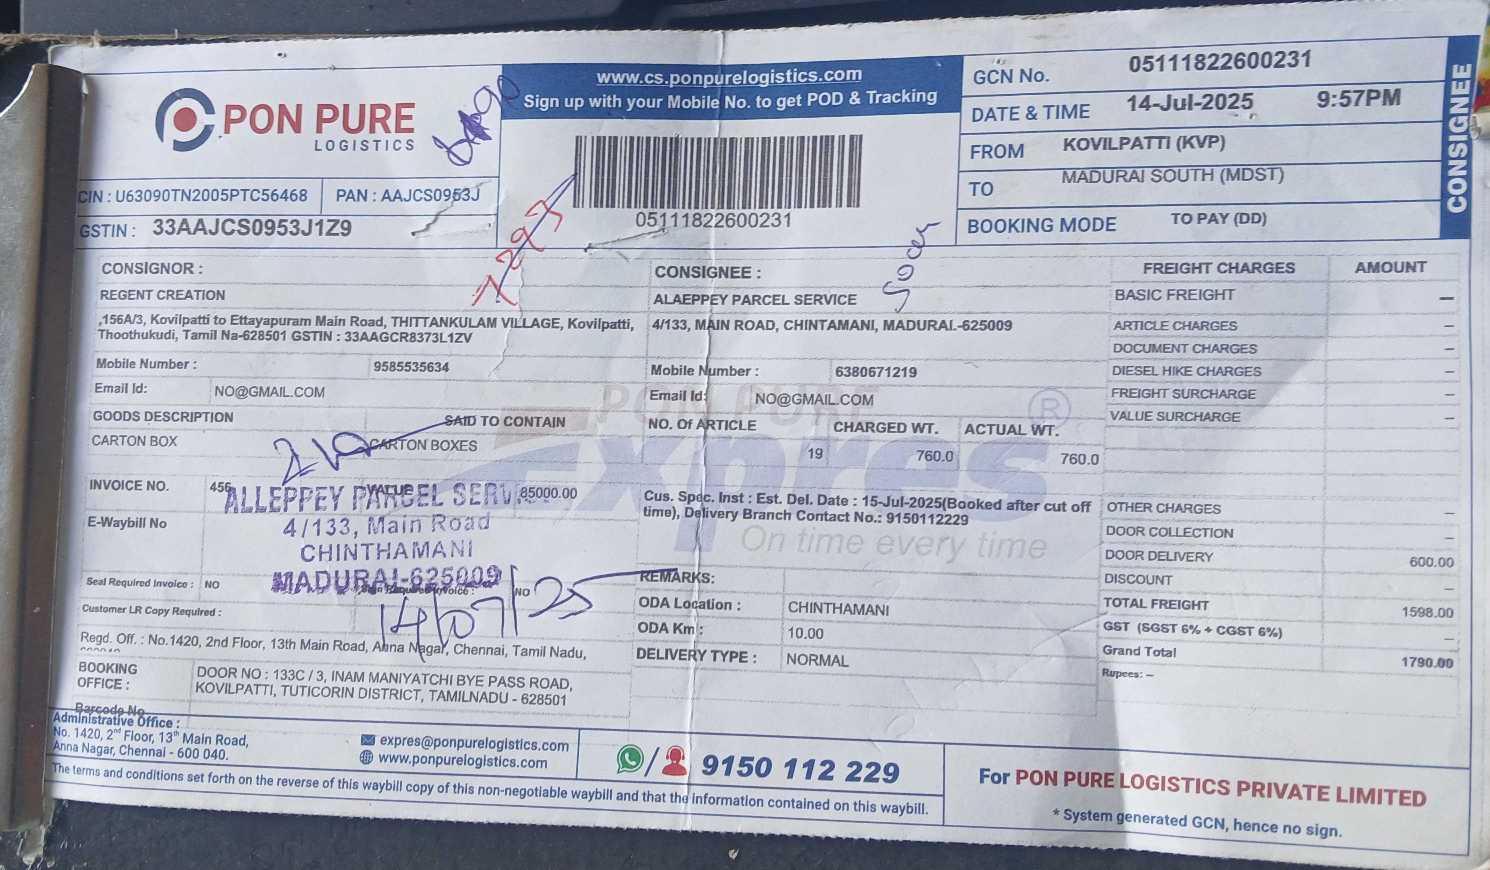 PON PURE
LOGISTICS
www.cs.ponpurelogistics.com
Sign up with your Mobile No. to get POD & Tracking
05111822600231
GCN No. 05111822600231
DATE & TIME 14-Jul-2025 9:57PM
FROM KOVILPATTI (KVP)
TO MADURAI SOUTH (MDST)
BOOKING MODE TO PAY (DD)
CONSIGNEE
CIN : U63090TN2005PTC56468 PAN : AAJCS0953J
GSTIN : 33AAJCS0953J1Z9
CONSIGNOR :
REGENT CREATION
,156A/3, Kovilpatti to Ettayapuram Main Road, THITTANKULAM VILLAGE, Kovilpatti,
Thoothukudi, Tamil Na-628501 GSTIN : 33AAGCR8373L1ZV
Mobile Number : 9585535634
Email Id: NO@GMAIL.COM
GOODS DESCRIPTION SAID TO CONTAIN
CARTON BOX CARTON BOXES
INVOICE NO. 456 VALUE 85000.00
E-Waybill No
Seal Required Invoice : NO Sign Required Invoice : NO
Customer LR Copy Required :
ALLEPPEY PARCEL SERV
4/133, Main Road
CHINTHAMANI
MADURAI-625009
14/07/25
Regd. Off. : No.1420, 2nd Floor, 13th Main Road, Anna Nagar, Chennai, Tamil Nadu,
BOOKING OFFICE : DOOR NO : 133C / 3, INAM MANIYATCHI BYE PASS ROAD,
KOVILPATTI, TUTICORIN DISTRICT, TAMILNADU - 628501
Barcode No
CONSIGNEE :
ALAEPPEY PARCEL SERVICE
4/133, MAIN ROAD, CHINTAMANI, MADURAI-625009
Mobile Number : 6380671219
Email Id: NO@GMAIL.COM
NO. Of ARTICLE CHARGED WT. ACTUAL WT.
19 760.0 760.0
PON PURE
Expres ®
On time every time
Cus. Spec. Inst : Est. Del. Date : 15-Jul-2025(Booked after cut off
time), Delivery Branch Contact No.: 9150112229
REMARKS:
ODA Location : CHINTHAMANI
ODA Km : 10.00
DELIVERY TYPE : NORMAL
FREIGHT CHARGES AMOUNT
BASIC FREIGHT –
ARTICLE CHARGES –
DOCUMENT CHARGES –
DIESEL HIKE CHARGES –
FREIGHT SURCHARGE –
VALUE SURCHARGE –
OTHER CHARGES –
DOOR COLLECTION –
DOOR DELIVERY 600.00
DISCOUNT –
TOTAL FREIGHT 1598.00
GST (SGST 6% + CGST 6%) –
Grand Total 1790.00
Rupees: –
Administrative Office :
No. 1420, 2nd Floor, 13th Main Road,
Anna Nagar, Chennai - 600 040.
expres@ponpurelogistics.com
www.ponpurelogistics.com
9150 112 229
The terms and conditions set forth on the reverse of this waybill copy of this non-negotiable waybill and that the information contained on this waybill.
For PON PURE LOGISTICS PRIVATE LIMITED
* System generated GCN, hence no sign.